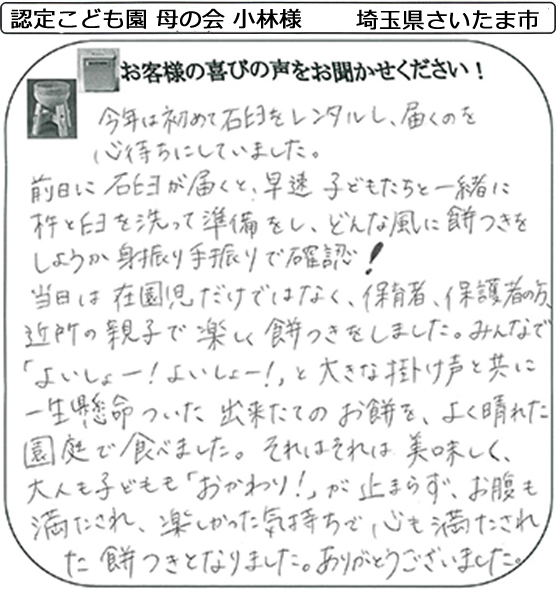 認定こども園 母の会 小林様　　埼玉県さいたま市
お客様の喜びの声をお聞かせください！
今年は初めて石臼をレンタルし、届くのを
心待ちにしていました。
前日に石臼が届くと、早速子どもたちと一緒に
杵と臼を洗って準備をし、どんな風に餅つきを
しようか身振り手振りで確認！
当日は在園児だけではなく、保育者、保護者の方、
近所の親子で楽しく餅つきをしました。みんなで
「よいしょー！よいしょー！」と大きな掛け声と共に
一生懸命ついた出来たてのお餅を、よく晴れた
園庭で食べました。それはそれは美味しく、
大人も子どもも「おかわり！」が止まらず、お腹も
満たされ、楽しかった気持ちで心も満たされ
た餅つきとなりました。ありがとうございました。